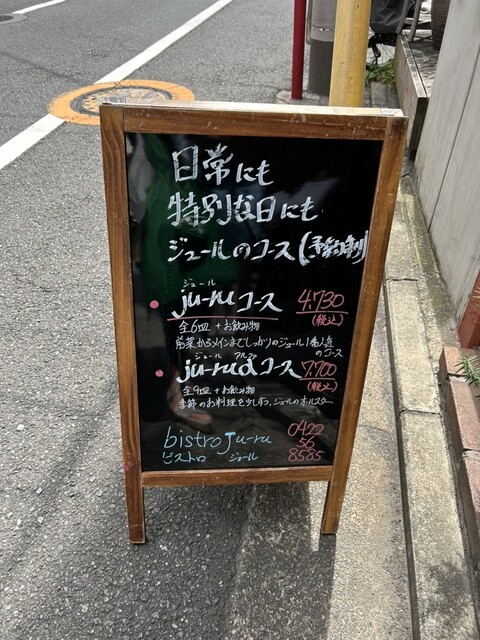 日常にも
特別な日にも
ジュールのコース(予約制)
ジュール
ju-ruコース 4,730
全6皿+お飲み物 (税込)
前菜からメインまでしっかりのジュール1番人気
のコース
ジュール アルファ
ju-ruαコース 7,700
全9皿+お飲み物 (税込)
季節のお料理を少しずつ、ジュールのオールスター
bistro ju-ru 0422
ビストロ ジュール 56
8585